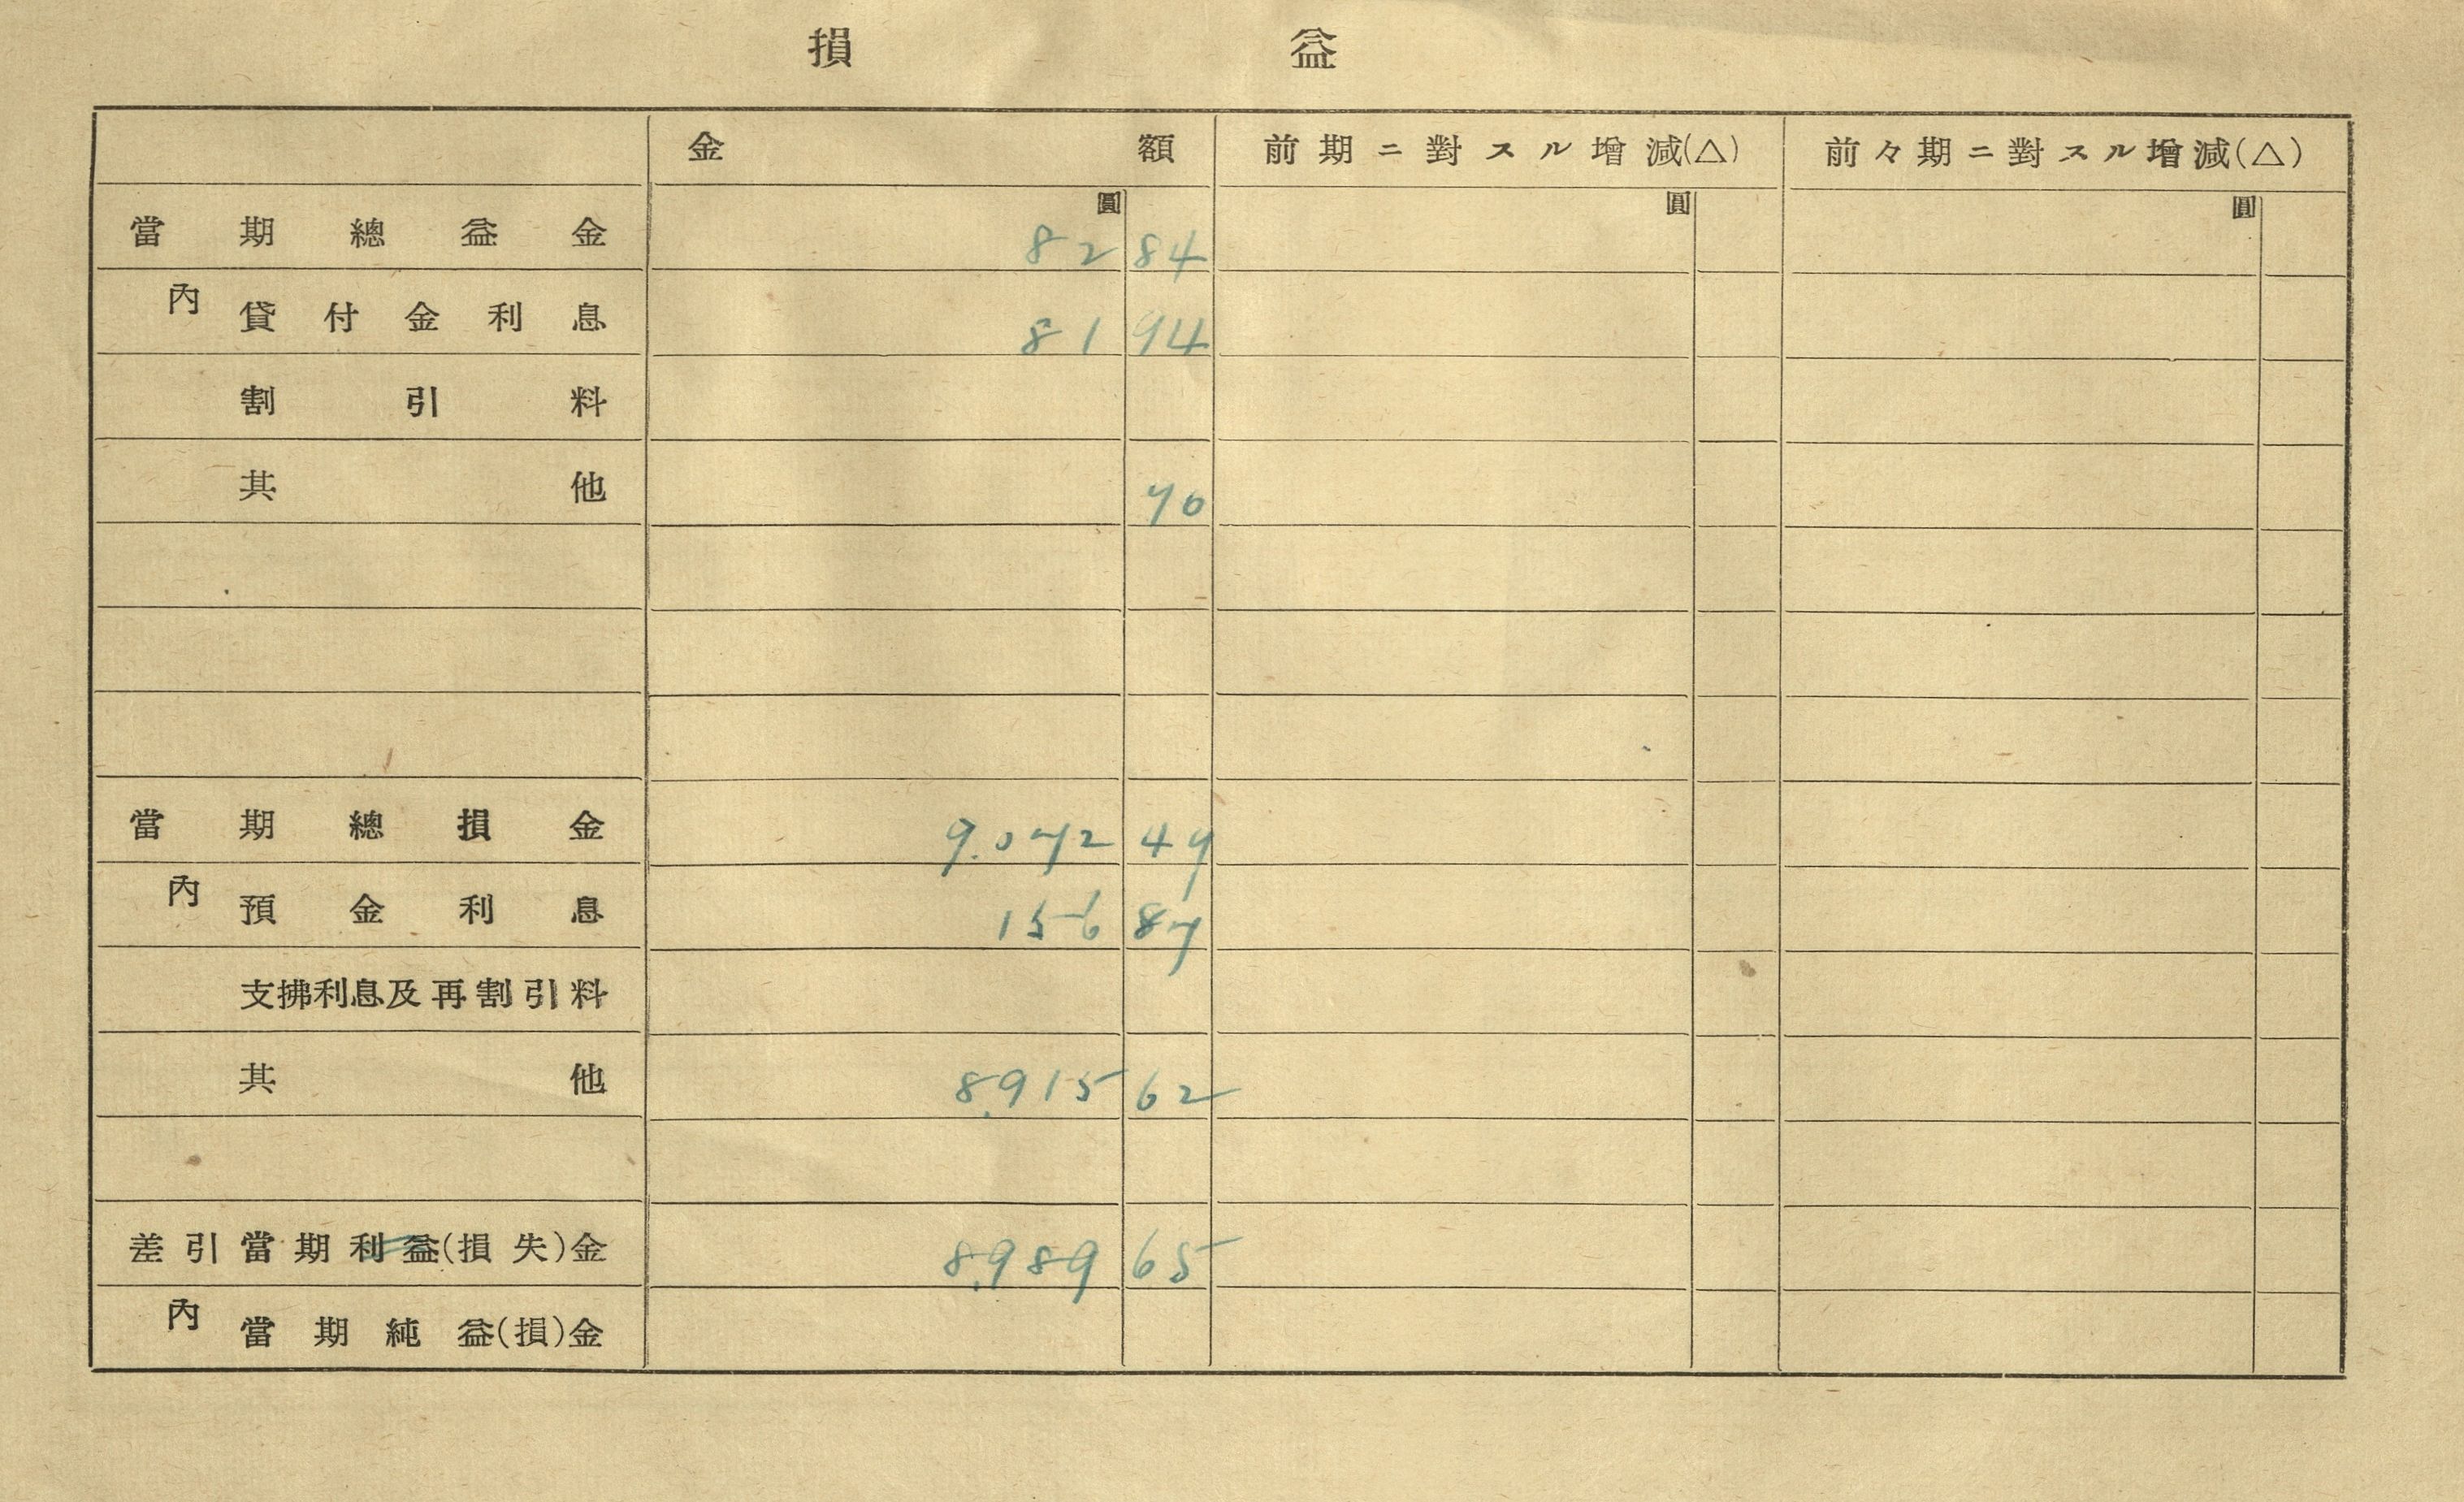 損益
金額 前期ニ對スル增減(△) 前々期ニ對スル增減(△)
圓 圓 圓
當期總益金 82 84
內 貸付金利息 81 94
割引料
其他 90
當期總損金 9.072 49
內 預金利息 156 87
支拂利息及再割引料
其他 8.915 62
差引當期利益(損失)金 8.989 65
內 當期純益(損)金